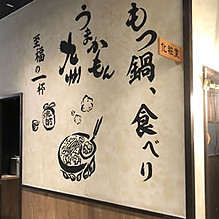 もつ鍋、食べり
うまかもん
九州
至福の一杯
化粧室